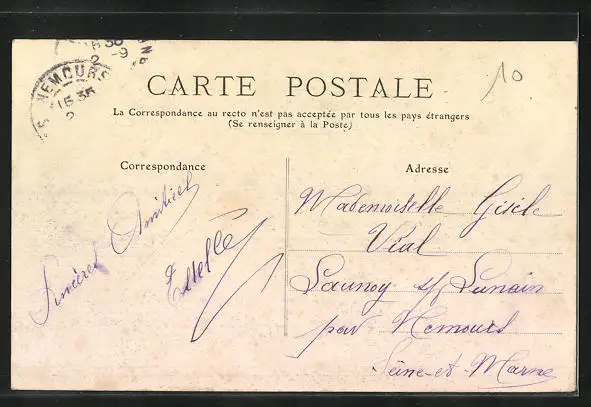 NEMOURS
15 35
2
2 -9
10
CARTE POSTALE
La Correspondance au recto n'est pas acceptée par tous les pays étrangers
(Se renseigner à la Poste)
Correspondance
Sincères Amitiés
Estelle
Adresse
Mademoiselle Gisèle
Vial
Launoy s/ Lunain
par Nemours
Seine-et-Marne